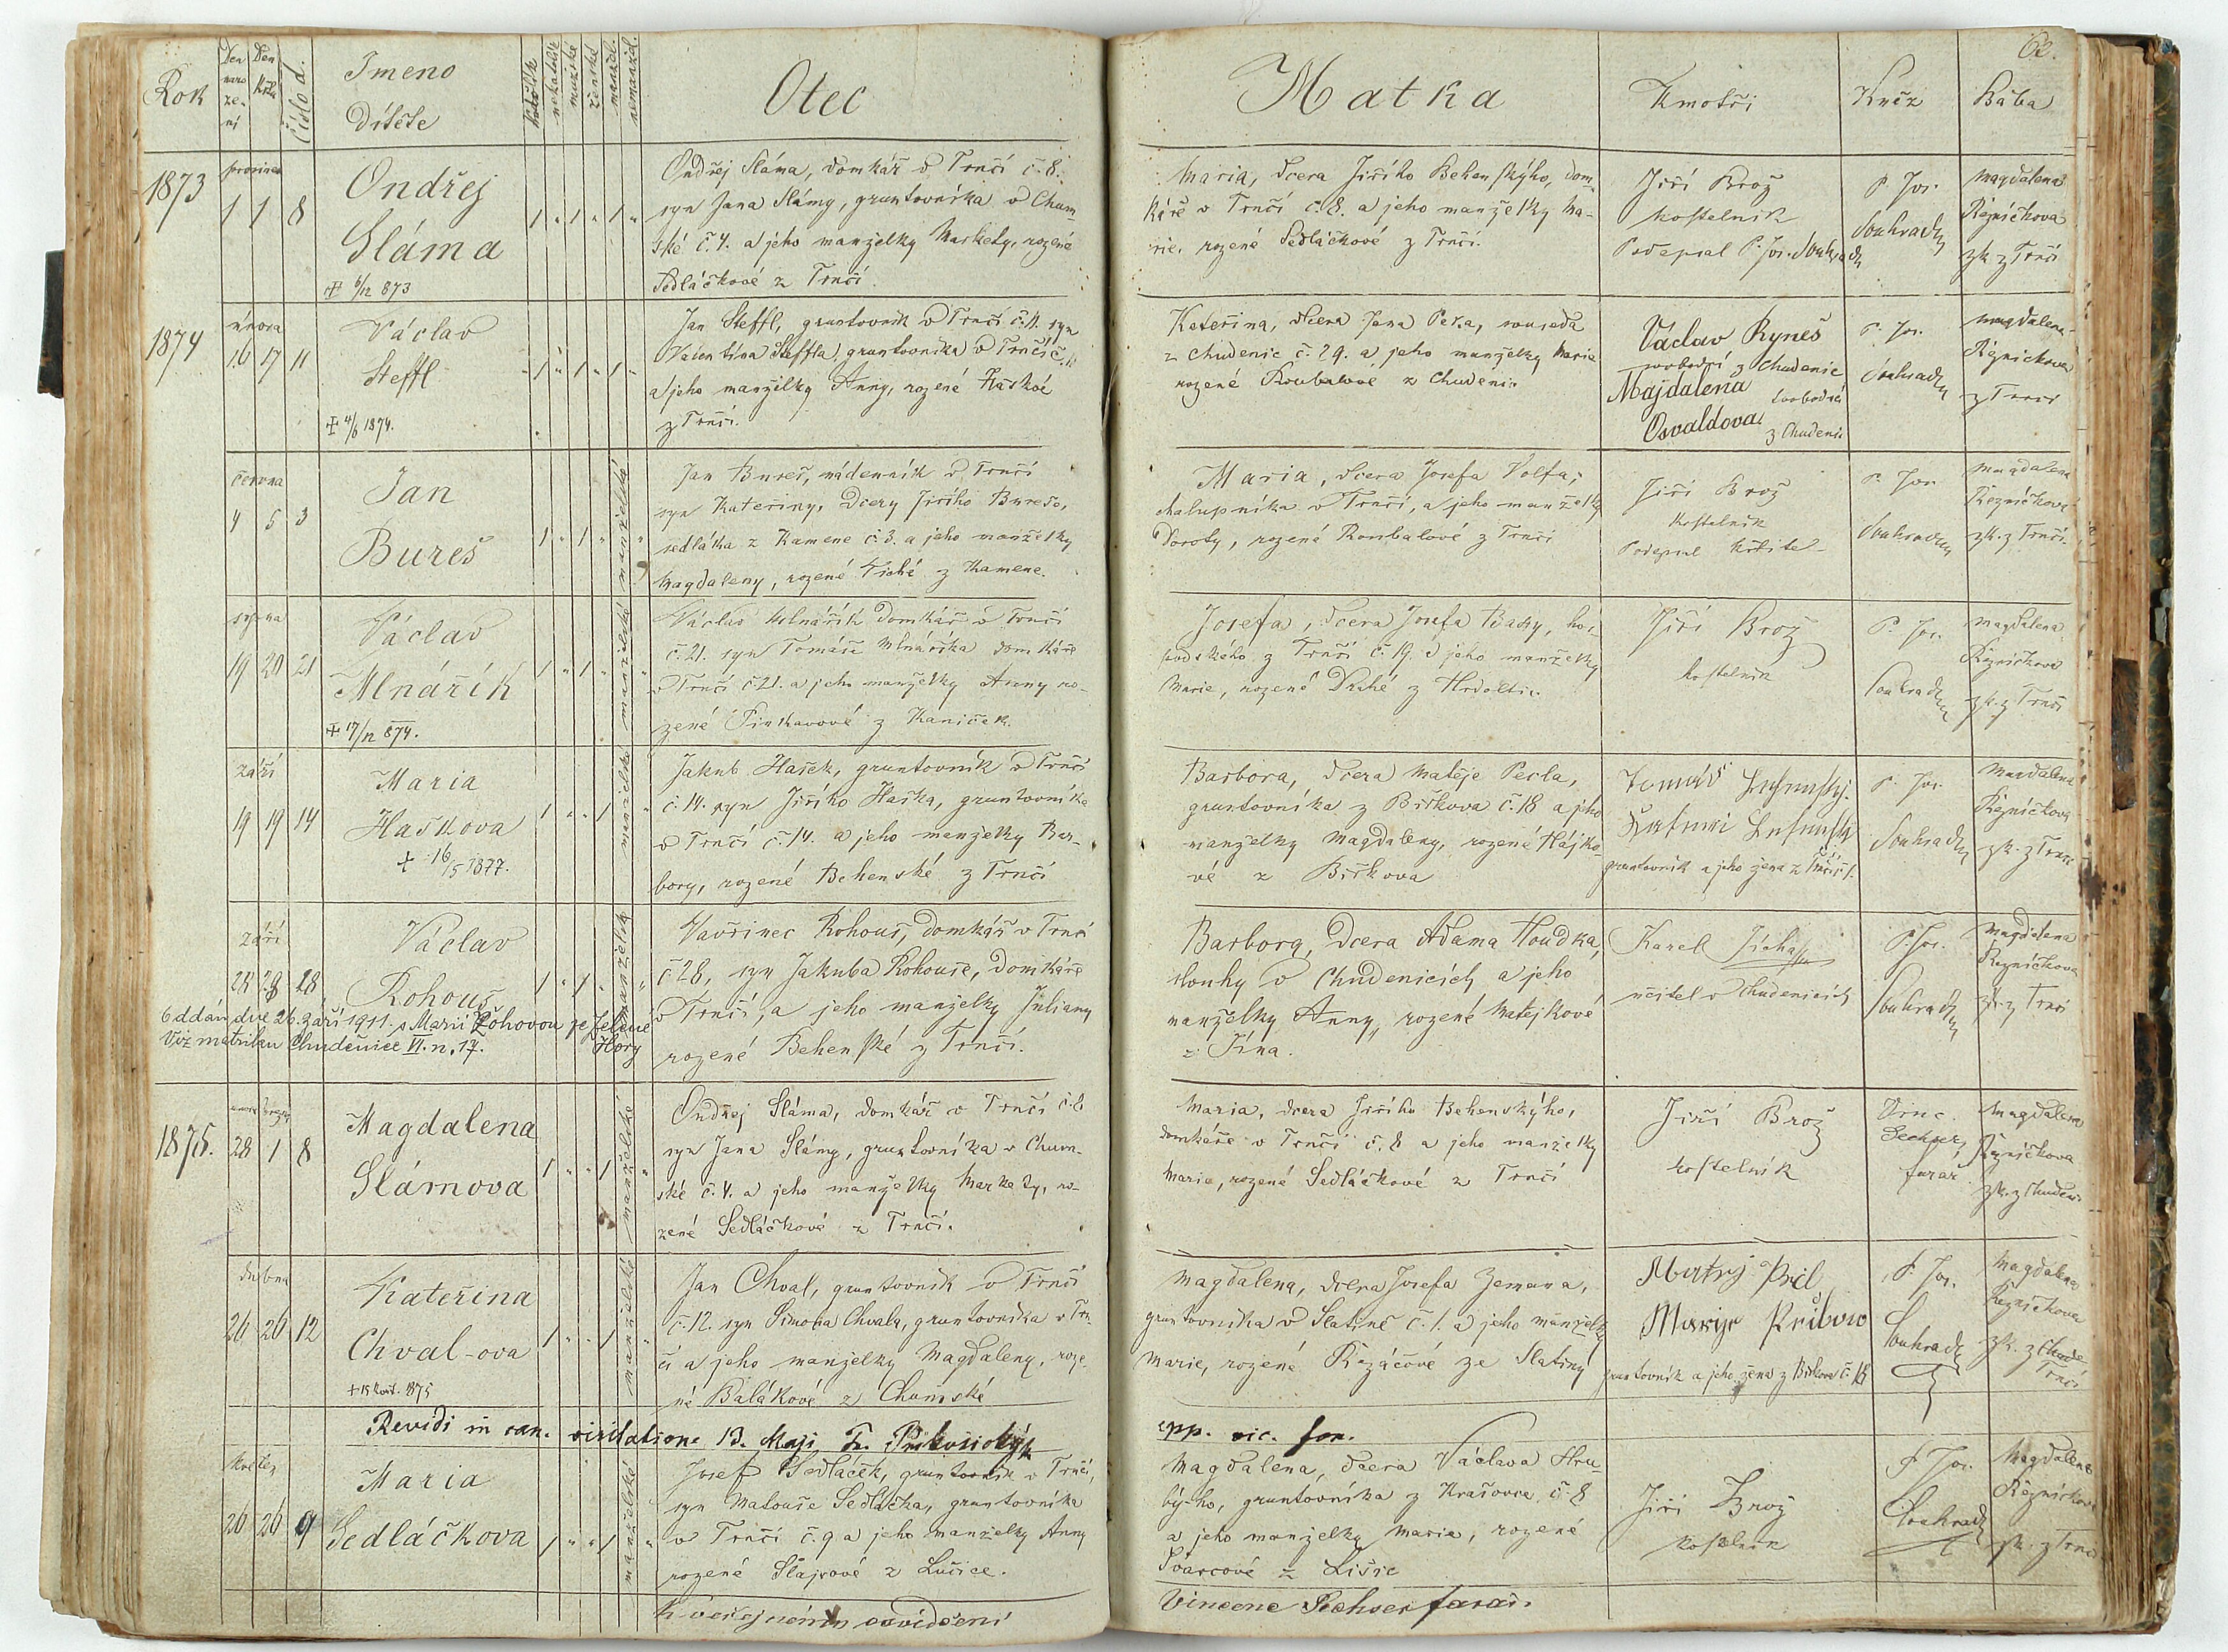 62.
Rok
Den naro ze- ní
Den Křtu
Číslo d.
Imeno
Dítěte
katolík
nekatolík
mužské
ženské
manžel.
nemanžel.
Otec
Matka
Kmotři
Kněz
Bába
1873
prosince
1 1 8
Ondřej
Sláma
+ 6/12 873
1 " 1 " 1 "
Ondřej Sláma, domkář v Trnčí č. 8.
syn Jana Slámy, gruntovníka v Chum-
ské č. 4. a jeho manželky Markety, rozené
Sedláčkové z Trnčí.
Maria, dcera Jiřího Behenského, dom-
káře v Trnčí č. 8. a jeho manželky Ma-
rie, rozené Sedláčkové z Trnčí.
Jiří Brož
kostelník
Podepsal P. Jos. Souhrada
P. Jos.
Souhrada
Magdalena
Řezníčkova
zk. z Trnčí
1874
února
16 17 11
Václav
Steffl
+ 4/6 1874.
" 1 " 1 " 1 "
Jan Steffl, gruntovník v Trnčí č. 11. syn
Valentína Steffla, gruntovníka v Trnčí č. 11
a jeho manželky Anny, rozené Haškové
z Trnčí.
Kateřina, dcera Jana Peka, souseda
z Chudenic č. 29. a jeho manželky Marie
rozené Roubalové z Chudenic
Václav Ryneš
svobodný z Chudenic
Majdalena svobodná
Osvaldova z Chudenic
P. Jos.
Souhrada
Magdalena
Řezníčkova
z Trnčí
června
4 5 3
Jan
Bureš
1 " 1 " manželské "
Jan Bureš, nádenník v Trnčí
syn Kateřiny, dcery Jiřího Bureše,
sedláka z Kamene č. 3. a jeho manželky
Magdaleny, rozené Tiché z Kamene.
Maria, dcera Josefa Volfa,
chalupníka v Trnčí, a jeho manželky
Doroty, rozené Roubalové z Trnčí
Jiří Brož
kostelník
Podepsal křtitel
P. Jos
Souhrada
Magdalena
Řezníčkova
zk. z Trnčí.
srpna
19 20 21
Václav
Mlnářík
+ 17/12 874.
1 " 1 " manželské "
Václav Mlnářík domkář v Trnčí
č. 21. syn Tomáše Mlnáříka domkáře
v Trnčí č 21. a jeho manželky Anny ro-
zené Pinkavové z Kaniček.
Josefa, dcera Josefa Bady, hos-
podského z Trnčí č. 19. a jeho manželky
Marie, rozené Druhé z Hrdoltic.
Jiří Brož
kostelník
P. Jos.
Souhrada
Magdalena
Řezníčkova
zk. z Trnčí
září
19 19 14
Maria
Haškova
+ 16/5 1877.
1 " " 1 manželské "
Jakub Hašek, gruntovník v Trnčí
č. 14. syn Jiřího Haška, gruntovníka
v Trnčí č. 14. a jeho manželky Bar-
bory, rozené Behenské z Trnčí
Barbora, dcera Matěje Pecla,
gruntovníka z Biřkova č. 18 a jeho
manželky Magdaleny, rozené Hájko-
vé z Biřkova
Tomáš
gruntovník a jeho žena z Trnčí č 1.
P. Jos.
Souhrada
Magdalena
Řezníčkova
zk. z Trnčí
září
28 28 28
Václav
Rohouš
1 " 1 " manželský "
oddán dne 26. září 1911. s Marií Žohovou ze Zelené Hory
Viz matriku Chudenice VI. n. 17.
Vavřinec Rohouš, domkář v Trnčí
č 28, syn Jakuba Rohouše, domkáře
v Trnčí, a jeho manželky Juliany
rozené Behenské z Trnčí.
Barbora, dcera Adama Houdka,
slouhy v Chudenicích a jeho
manželky Anny, rozené Matějkové
z Jína.
Karel Jícha
učitel v Chudenicích
P. Jos.
Souhrada
Magdalena
Řezníčkova
zk. z Trnčí
1875.
února března
28 1 8
Magdalena
Slámova
1 " " 1 manželské "
Ondřej Sláma, domkář v Trnčí č. 8
syn Jana Slámy, gruntovníka v Chum-
ské č. 4. a jeho manželky Markety, ro-
zené Sedláčkové z Trnčí.
Maria, dcera Jiřího Behenskýho,
domkáře v Trnčí č. 8 a jeho manželky
Marie, rozené Sedláčkové z Trnčí
Jiří Brož
kostelník
Vinc.
Sechser
farář
Magdalena
Řezníčkova
zk. z Chuden.
dubna
26 26 12
Kateřina
Chval-ova
+ 15 květ. 875
1 " " 1 manželské "
Jan Chval, gruntovník v Trnčí
č. 12. syn Šimona Chvala, gruntovníka v Trn-
čí a jeho manželky Magdaleny, roze-
né Balákové z Chumské
Magdalena, dcera Josefa Zemana,
gruntovníka v Slatině č. 1. a jeho manželky
Marie, rozené Řezáčové ze Slatiny
gruntovník a jeho žena z Biřkova č 18
P. Jos.
Souhrada
Magdalena
Řezníčkova
zk. z Chude
Trnčí
Revidi in can. visitatione 13. Maji Fr. epp. vic. for.
květen
26 26 9
Maria
Sedláčkova
1 " " 1 manželské "
Josef Sedláček, gruntovník v Trnčí,
syn Matouše Sedláčka, gruntovníka
v Trnčí č. 9 a jeho manželky Anny
rozené Šlajsové z Lučice.
Magdalena, dcera Václava Hru-
bý-ho, gruntovníka z Krašovce č. 8
a jeho manželky Maria, rozené
Švarcové z Lišic
Jiří Brož
kostelník
P. Jos.
Souhrada
Magdalena
Řezníčkova
zk. z Trnčí
K veřejnému osvědčení
Vincenc Sechser farář.